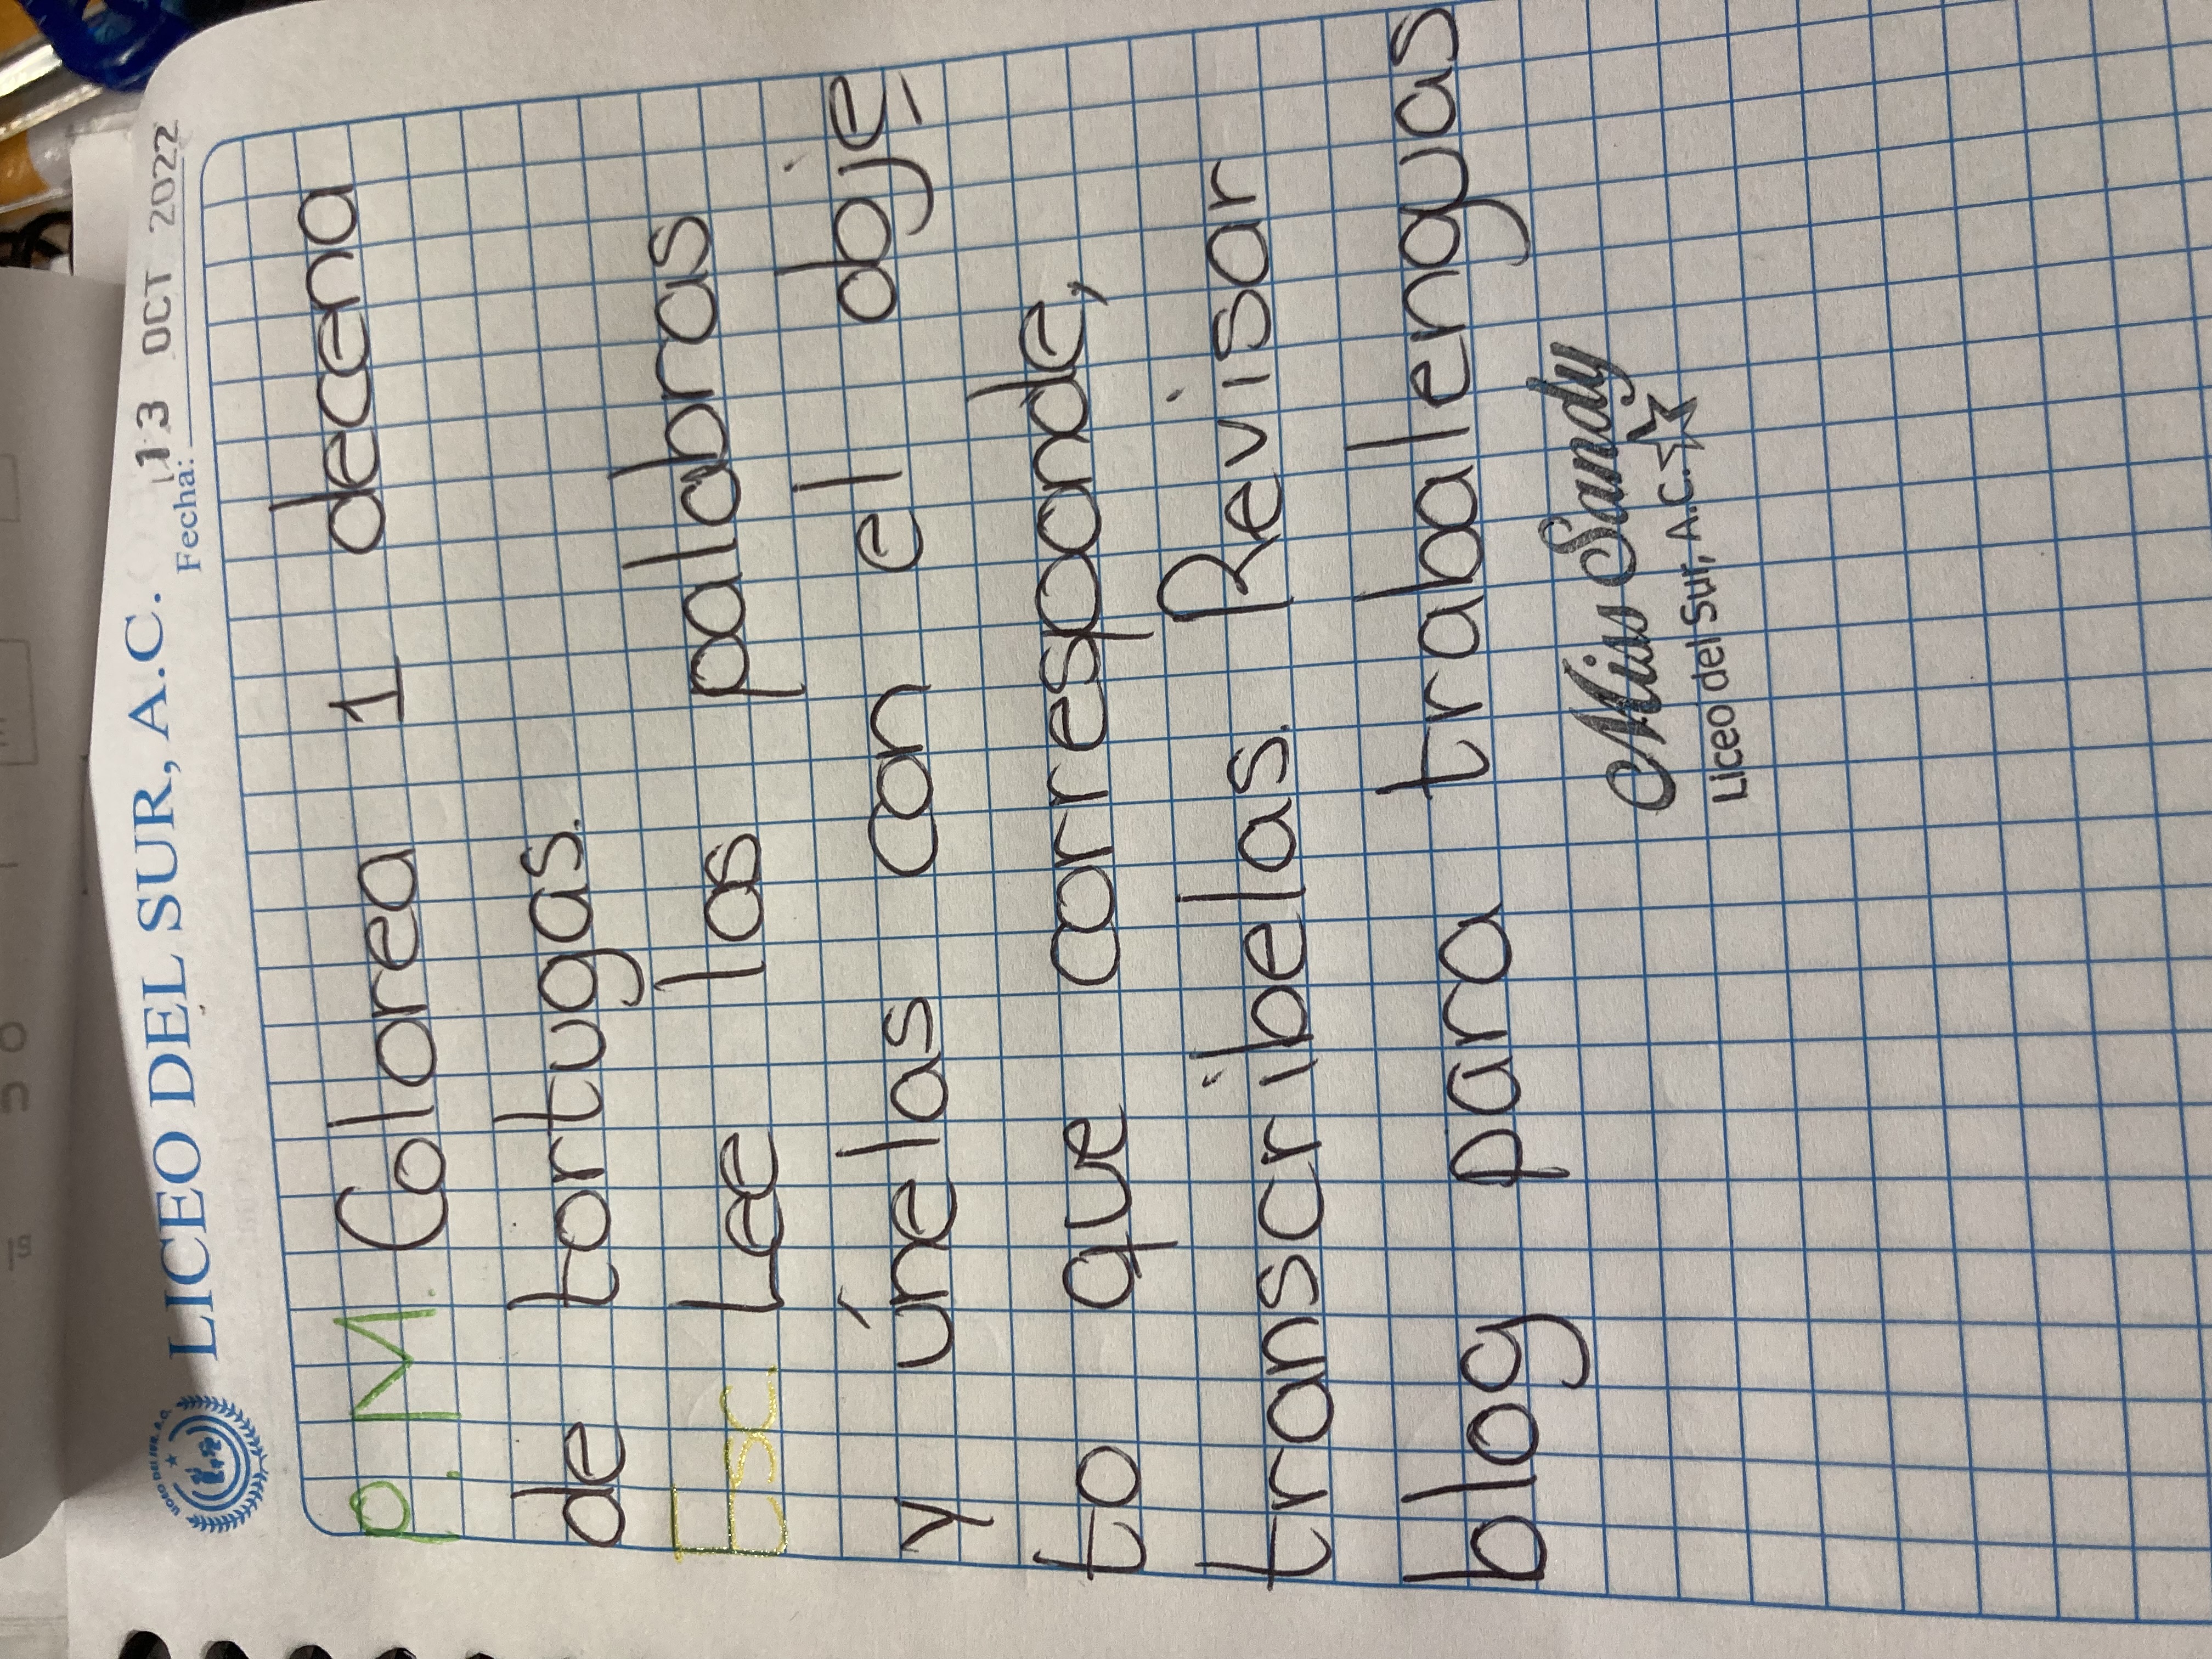 LICEO DEL SUR, A.C.
Fecha: 13 OCT 2022
P.M. Colorea 1 decena
de tortugas.
Esc. Lee las palabras
y únelas con el obje,
to que corresponde,
transcribelas. Revisar
blog para trabalenguas
Miss Sandy
Liceo del Sur, A.C.